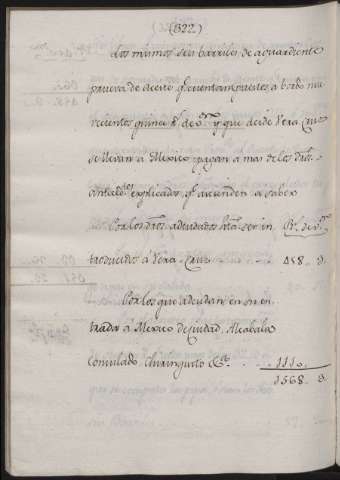 (322)
Los mismos seis barriles de aguardiente
prueva de aceite qe. cuentan puestos a bordo nu
vecientos quince ps. de y que desde Vera Cruz
se llevan a Mexico pagan a mas de los dros.
anticipdos. explicados qe. ascienden a saber
Por los dros. adeudados hta. ser in Ps. de
troducidos a Vera-Cruz 458.
Por los que adeudan en su en
trada a Mexico de ciudad, Alcabala
Consulado, Chiringuito &a. 1110.
1568.